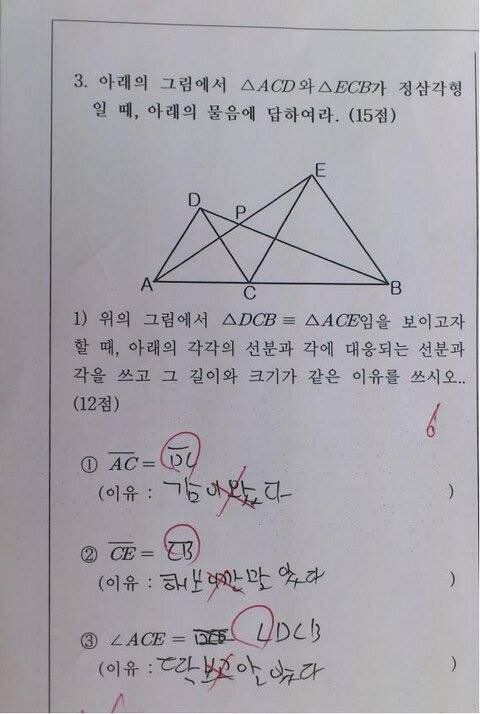 3. 아래의 그림에서 △ACD와 △ECB가 정삼각형
일 때, 아래의 물음에 답하여라. (15점)
E
D
P
A
C
B
1) 위의 그림에서 △DCB ≡ △ACE임을 보이고자
할 때, 아래의 각각의 선분과 각에 대응되는 선분과
각을 쓰고 그 길이와 크기가 같은 이유를 쓰시오..
(12점)
6
① AC = DC
(이유 : 감이 왔다 )
② CE = CB
(이유 : 해보 말 했다 )
③ ∠ACE = ∠DCB
(이유 : 딱 보고 알 았다 )